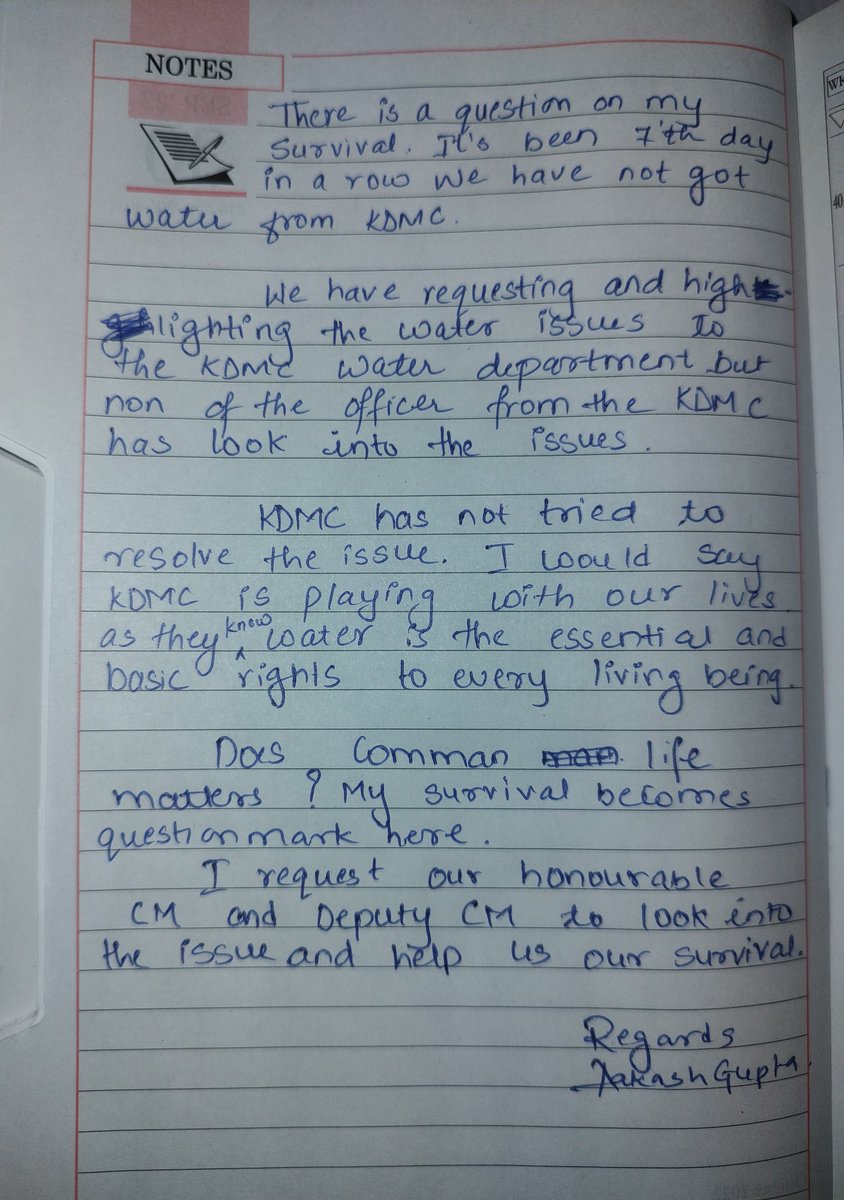 NOTES
There is a question on my
survival. It's been 7'th day
in a row we have not got
water from KDMC.
We have requesting and high
lighting the water issues to
the KDMC water department but
non of the officer from the KDMC
has look into the issues.
KDMC has not tried to
resolve the issue. I would say
KDMC is playing with our lives
as they know water is the essential and
basic rights to every living being.
Does Comman life
matters ? My survival becomes
question mark here.
I request our honourable
CM and Deputy CM to look into
the issue and help us our survival.
Regards
Aakash Gupta
WK
40